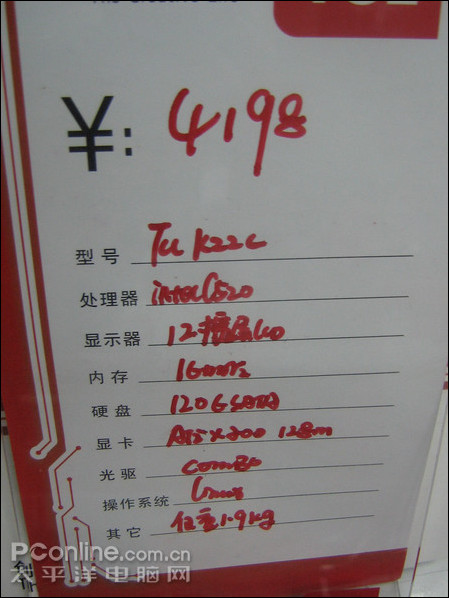 The Creative Life
TCL
¥: 4198
型号 TCL K22C
处理器 intel C520
显示器 12 镜面LCD
内存 1G DDR2
硬盘 120G SATA
显卡 ATI X200 128m
光驱 comBo
操作系统 Linux
其它 仅重1.9kg
PConline.com.cn
太平洋电脑网